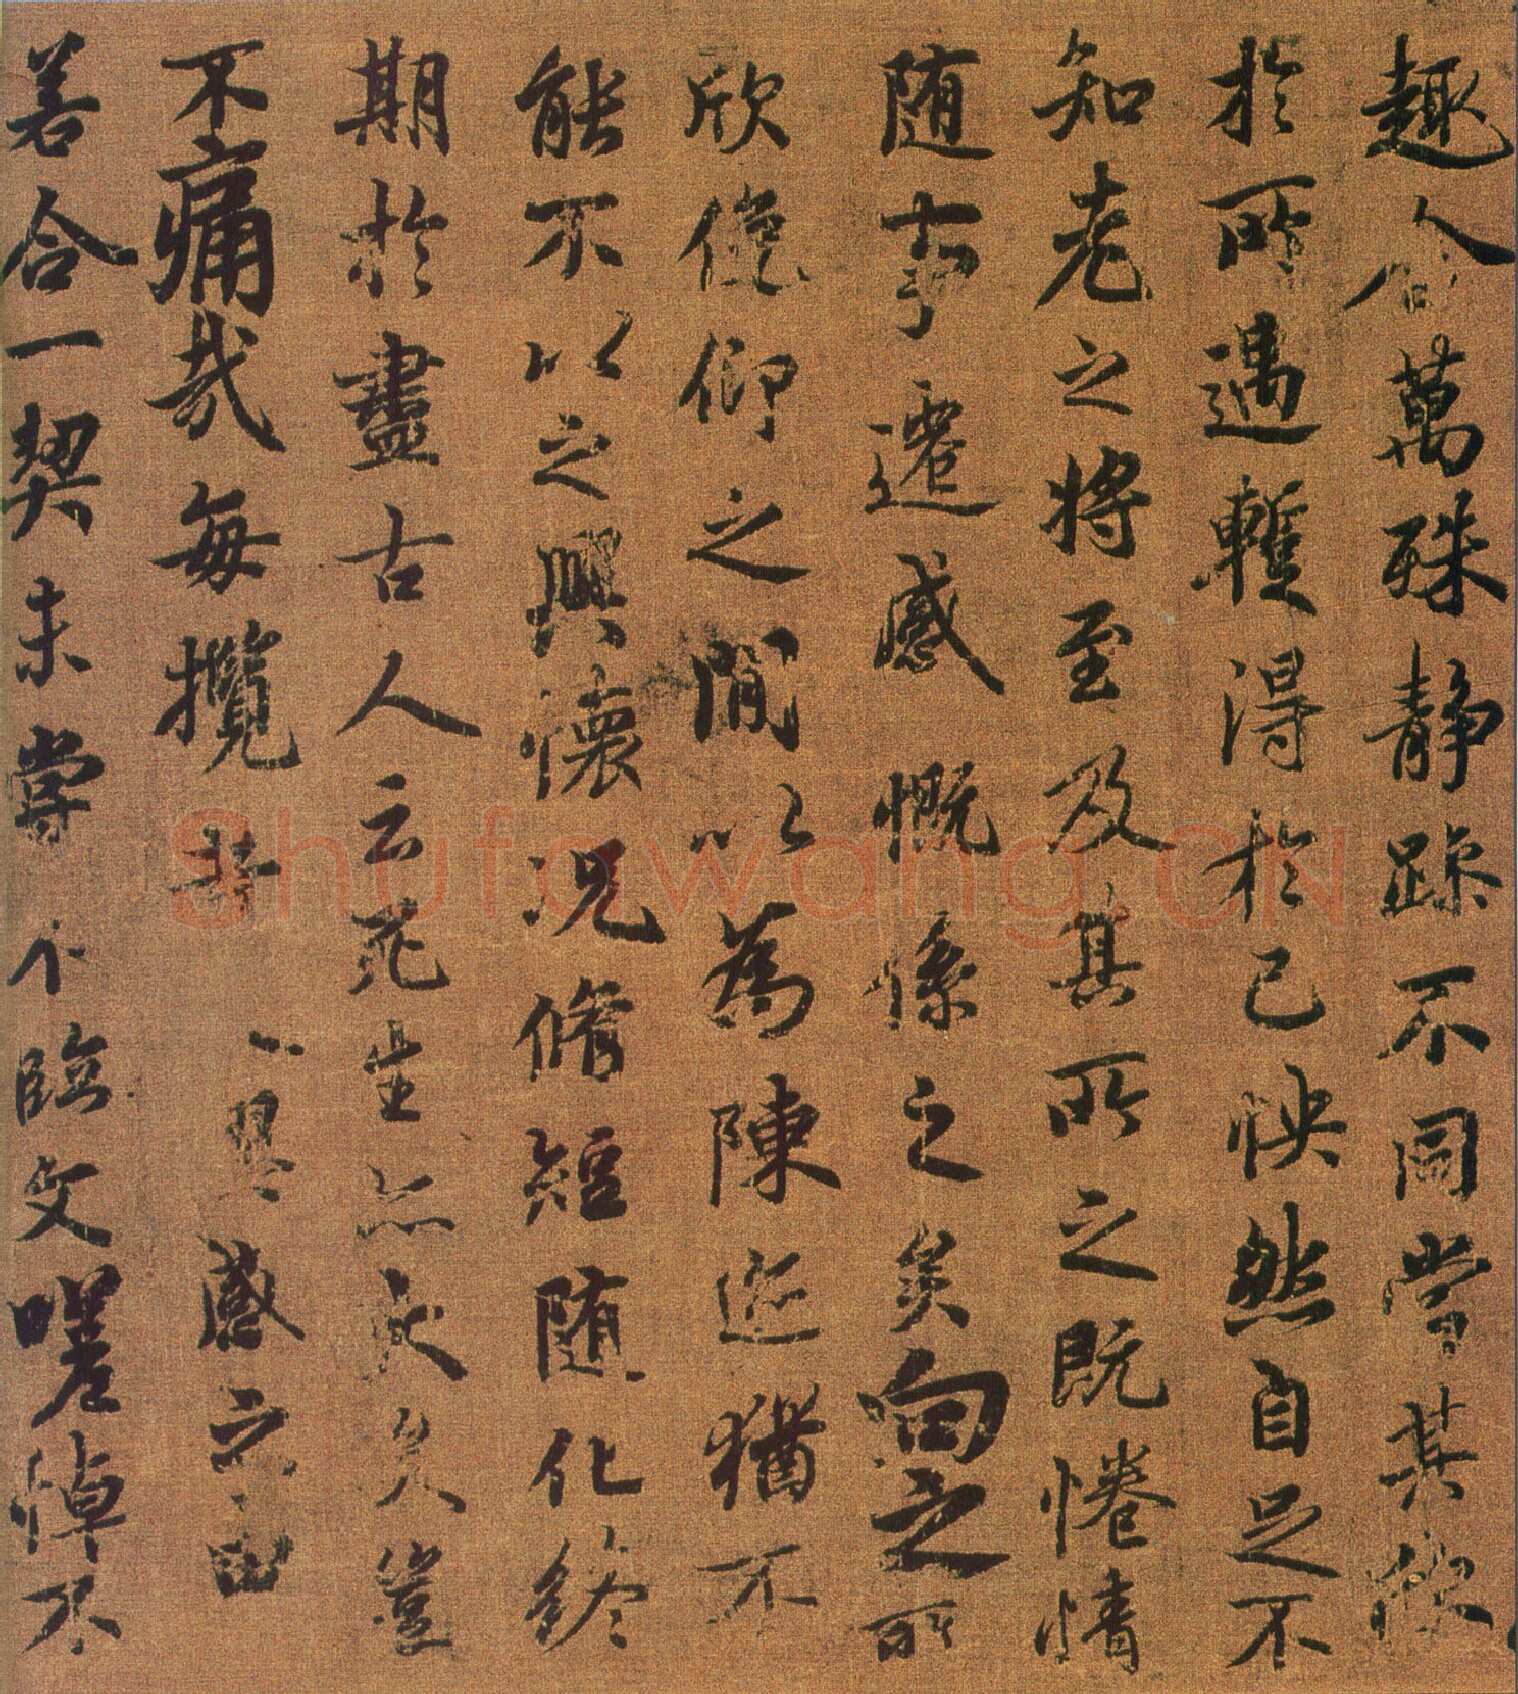 趣舍萬殊靜躁不同當其欣
於所遇蹔得於己怏然自足不
知老之將至及其所之既惓情
隨事遷感慨係之矣向之所
欣俛仰之閒以為陳迹猶不
能不以之興懷況脩短隨化終
期於盡古人云死生亦大矣豈
不痛哉每攬昔人興感之由
若合一契未嘗不臨文嗟悼不
Shufawang.CN